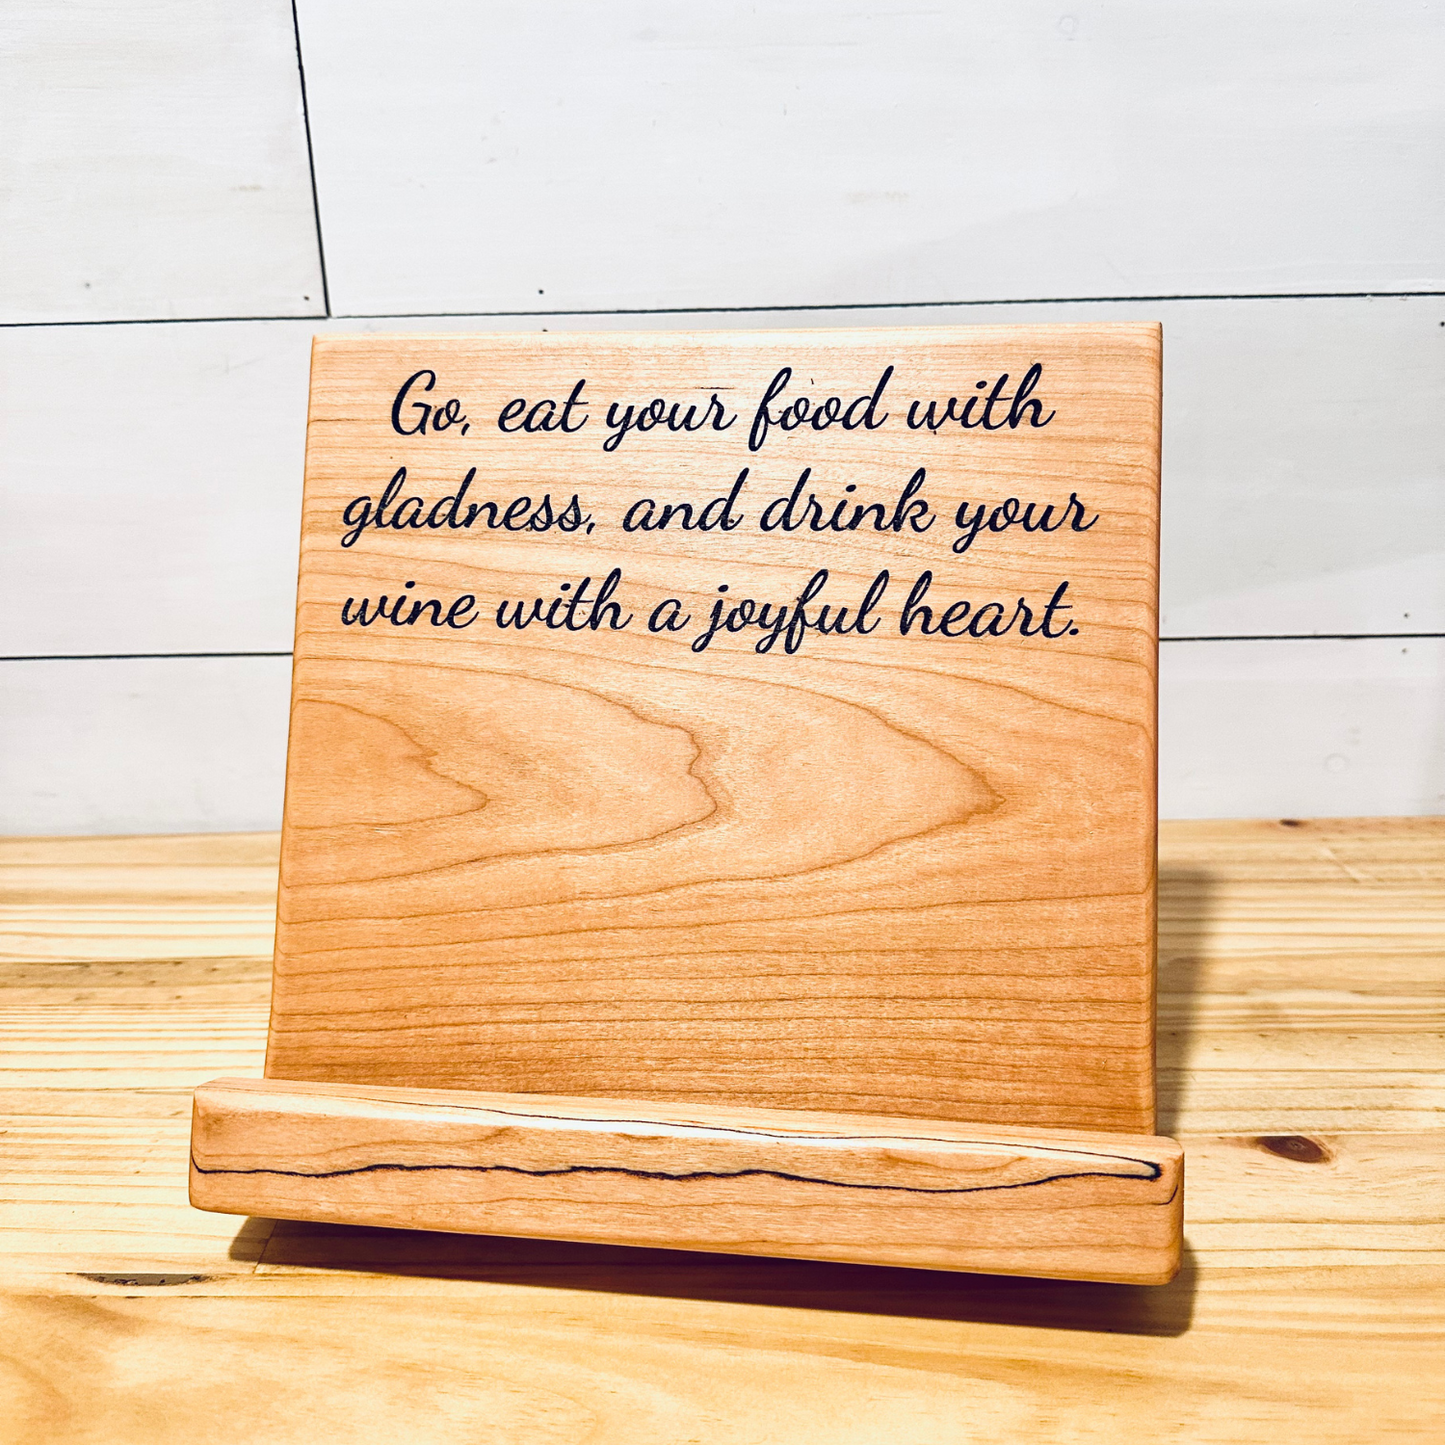 Go, eat your food with
gladness, and drink your
wine with a joyful heart.